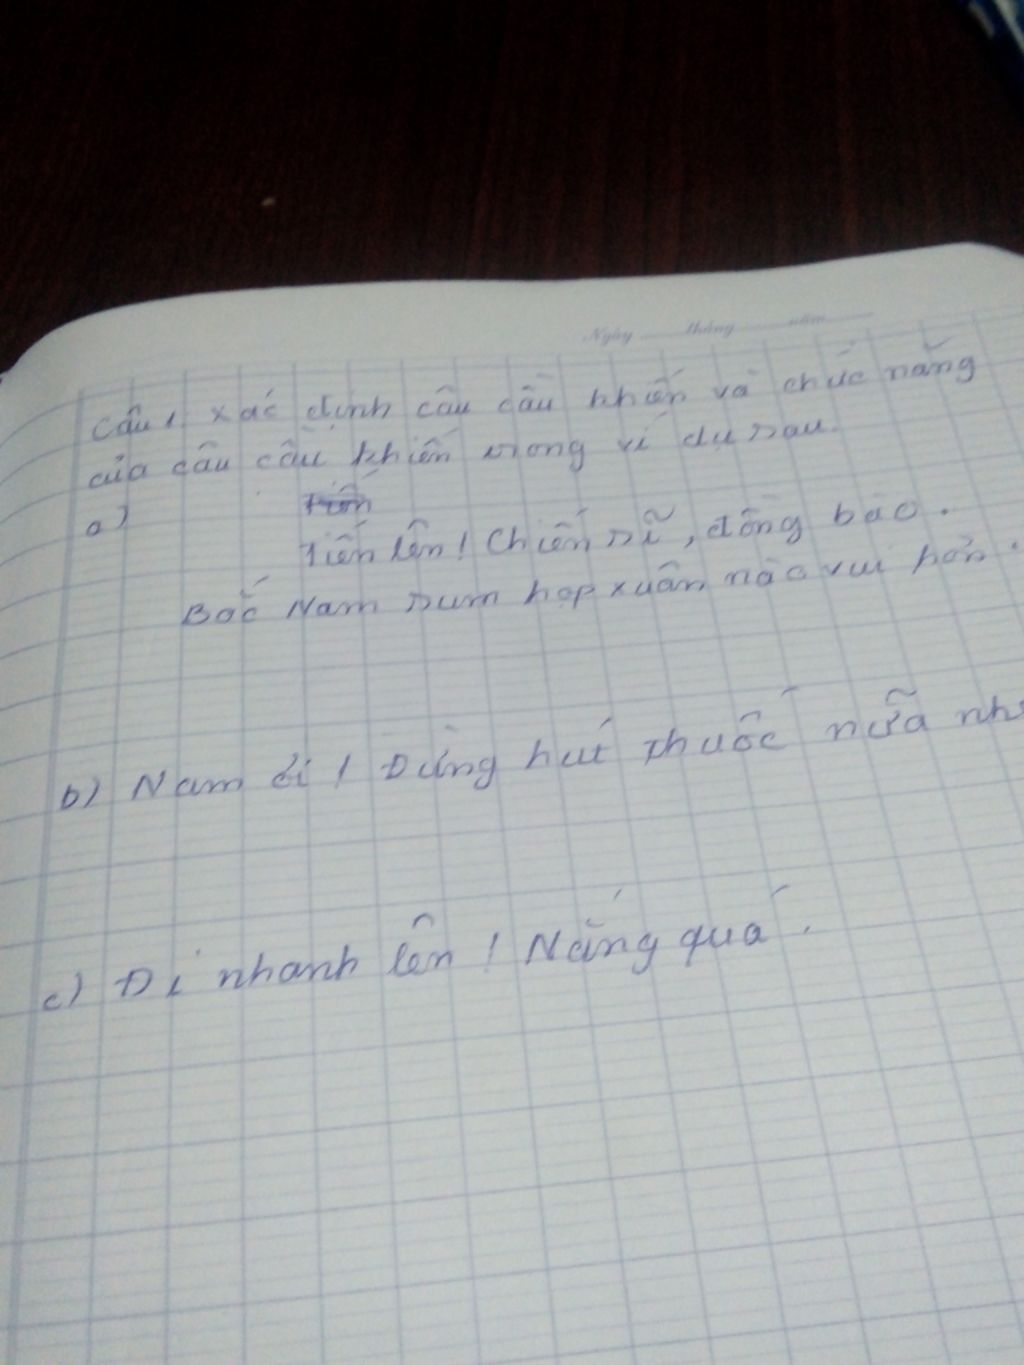 Ngày tháng năm
Câu 1. Xác định câu cầu khiến và chức năng
của câu cầu khiến trong ví dụ sau.
a)
Tiến lên! Chiến sĩ, đồng bào.
Bắc Nam sum họp xuân nào vui hơn.
b) Nam ơi! Đừng hút thuốc nữa
c) Đi nhanh lên! Nắng quá.